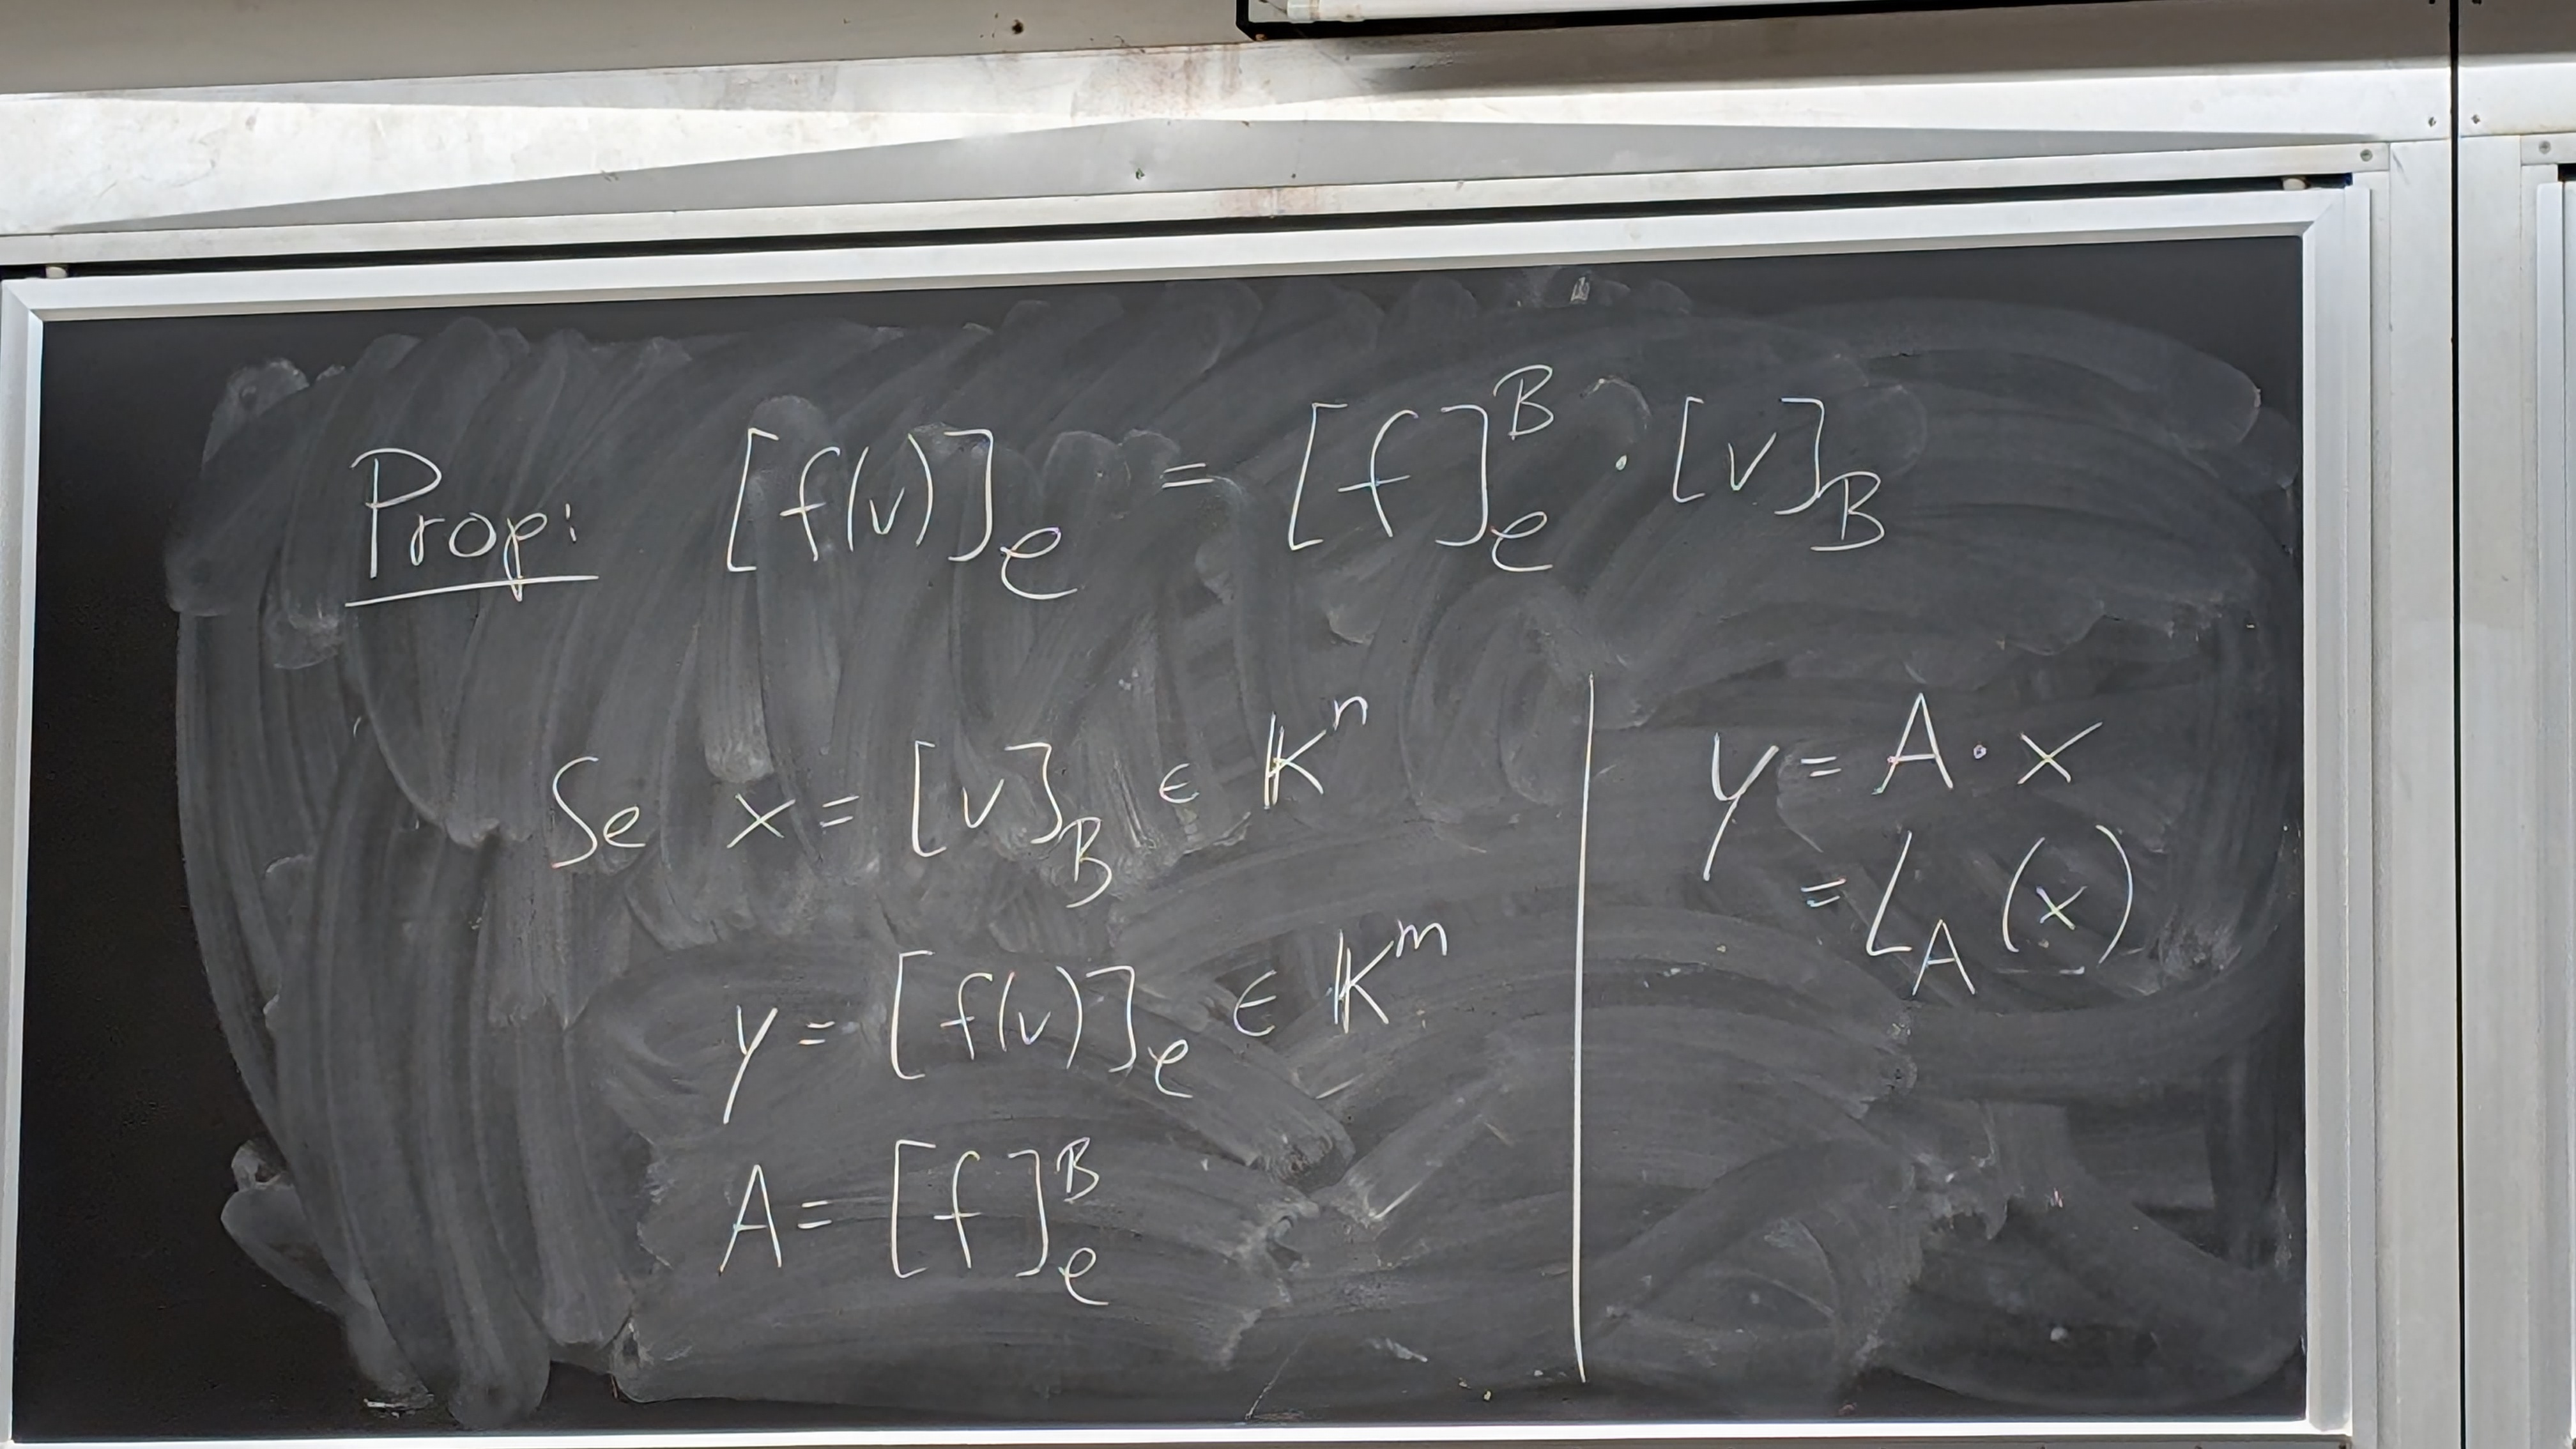 Prop: [f(v)]_e = [f]_e^B · [v]_B
Se x = [v]_B ∈ 𝕂^n
y = [f(v)]_e ∈ 𝕂^m
A = [f]_e^B
y = A · x
= L_A (x)